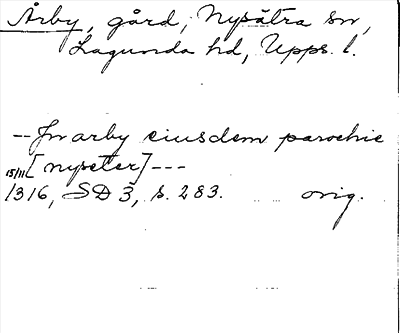 Årby, gård, Nysätra sn,
Lagunda hd, Upps. l.
-- Jn arby eiusdem parochie
[nyseter] ---
15/11 1316, SD 3, s. 283. orig.